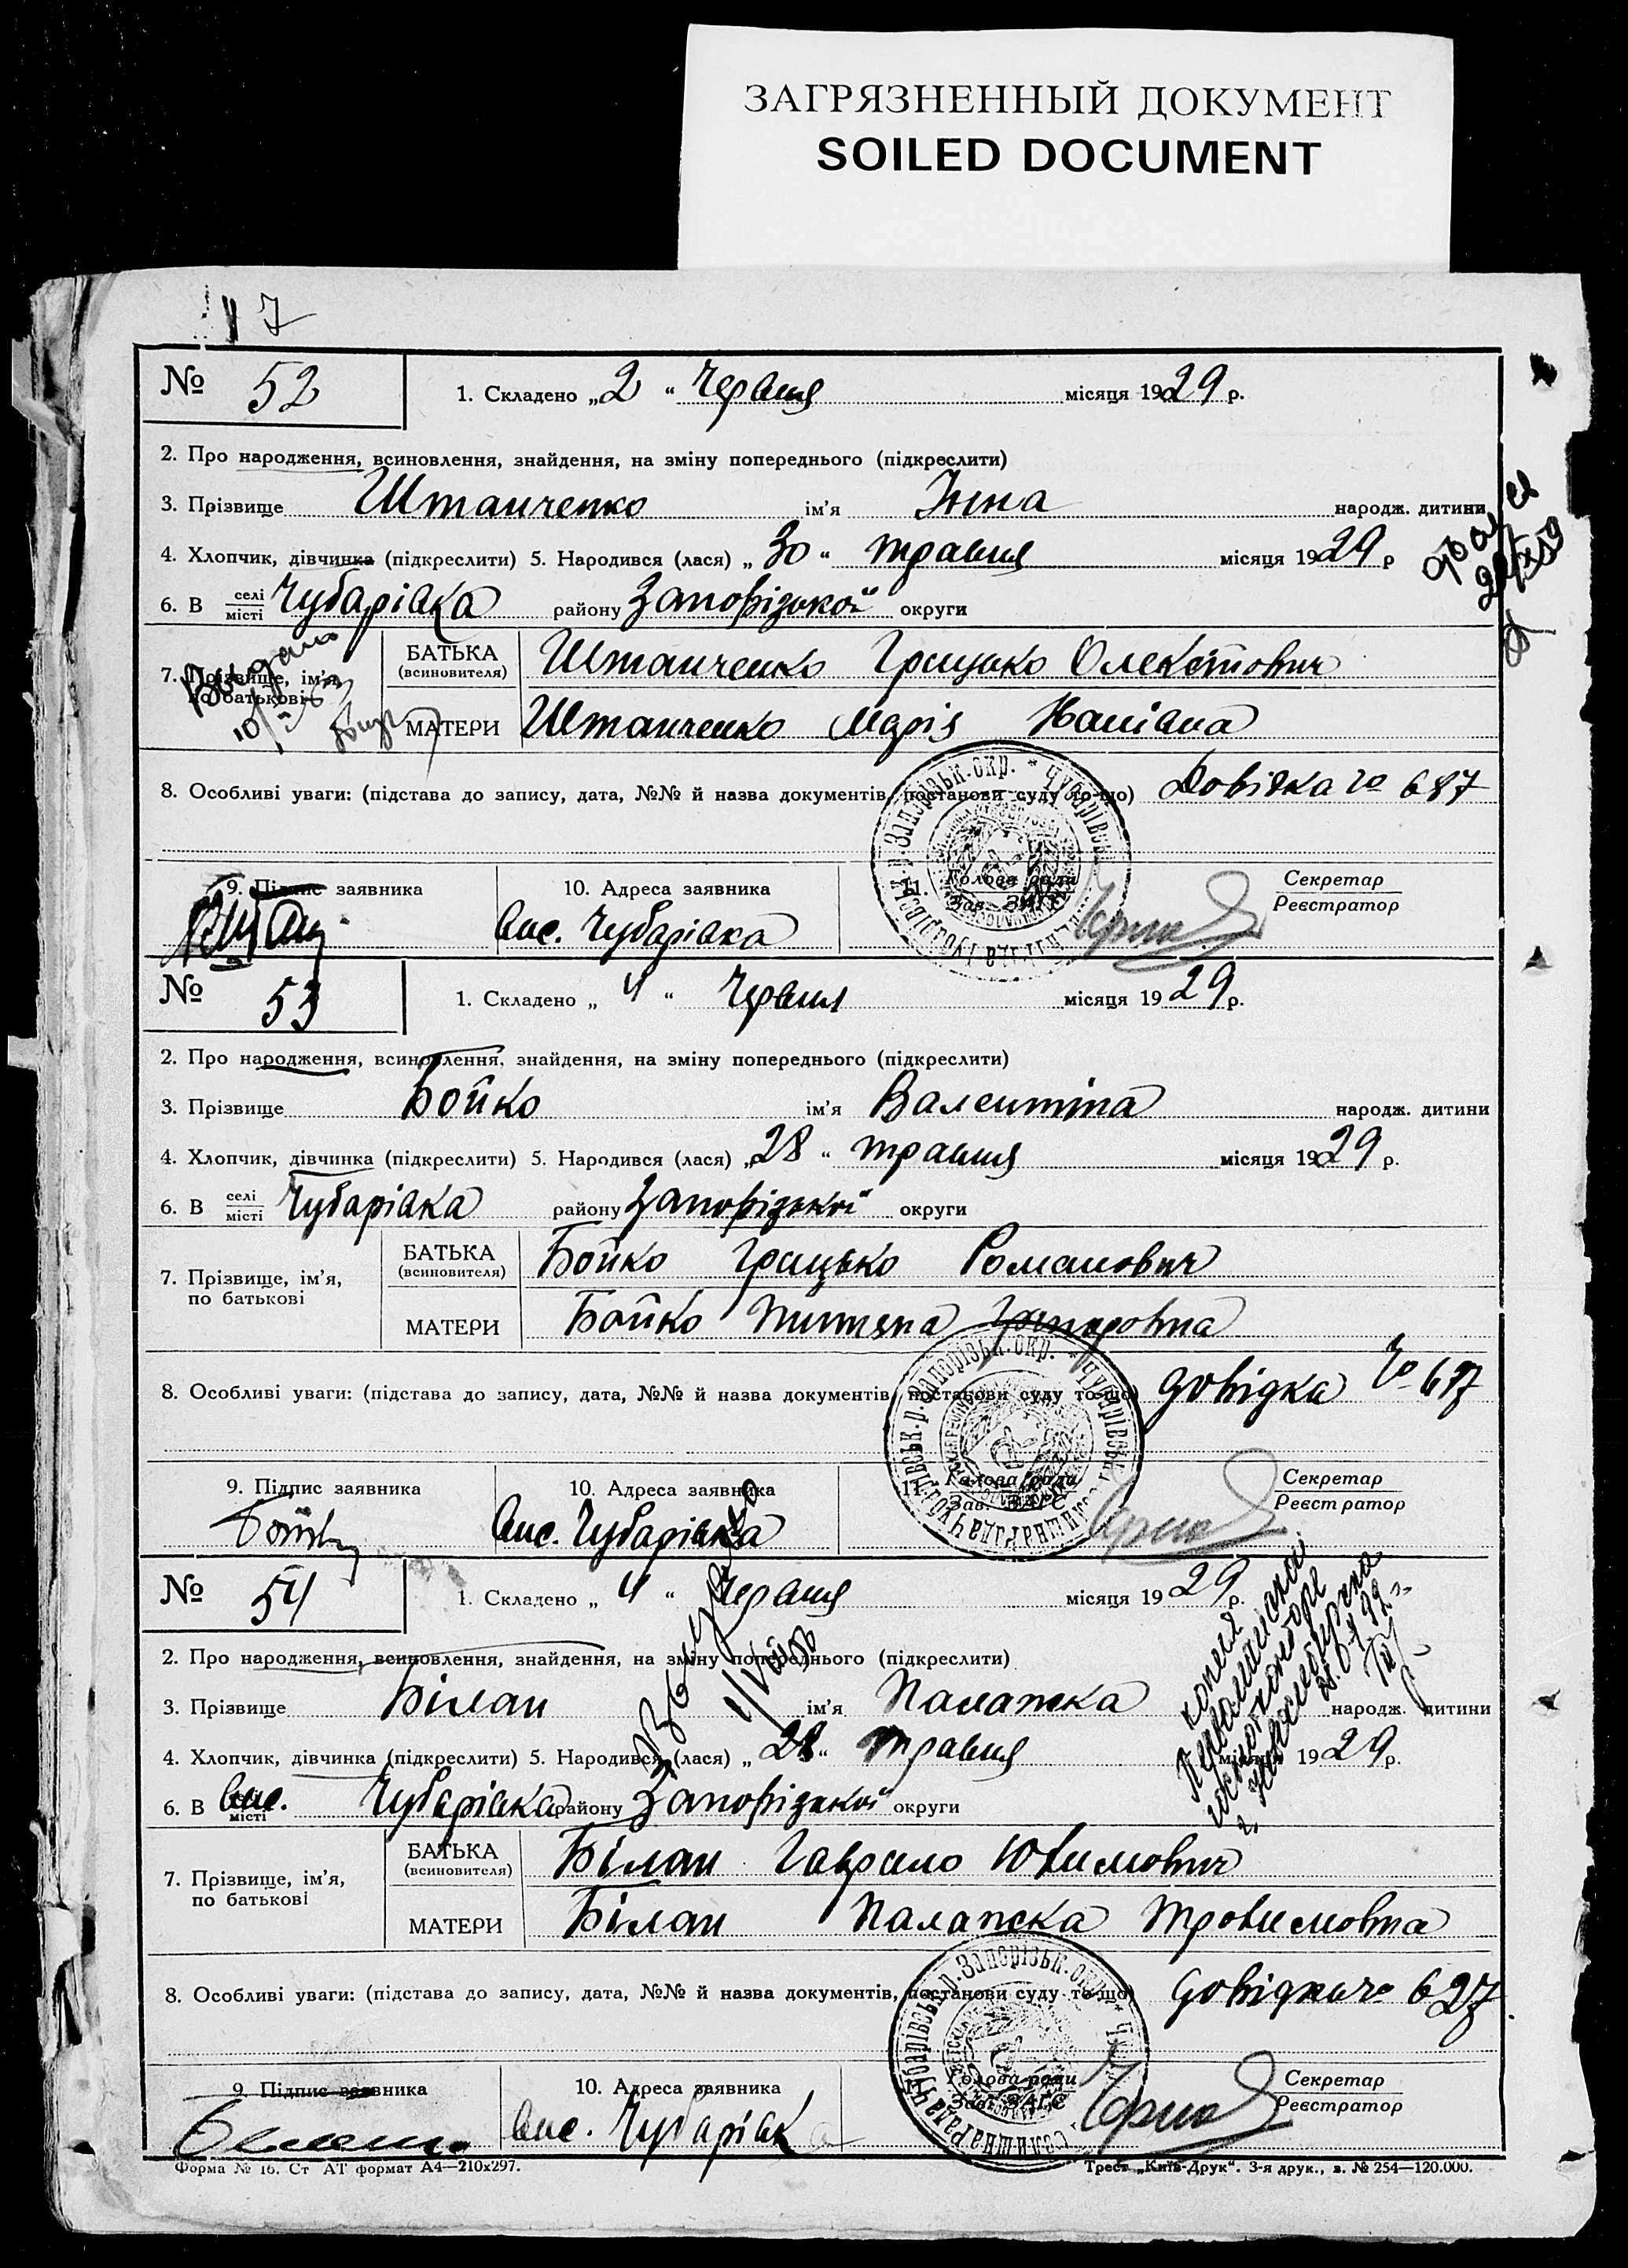 ЗАГРЯЗНЕННЫЙ ДОКУМЕНТ
SOILED DOCUMENT
7
№ 52
1. Складено „2“ Червня місяця 1929 р.
2. Про народження, всиновлення, знайдення, на зміну попереднього (підкреслити)
3. Прізвище Штанченко ім'я Інна народж. дитини
4. Хлопчик, дівчинка (підкреслити) 5. Народився (лася) „30“ травня місяця 1929 р
6. В селі місті Чубарівка району Запорізької округи
7. Прізвище, ім'я, по батькові
БАТЬКА (всиновителя) Штанченко Грицько Олексійович
МАТЕРИ Штанченко Марія
8. Особливі уваги: (підстава до запису, дата, №№ й назва документів, постанови суду то-що) Довідка № 687
9. Підпис заявника
10. Адреса заявника
вис. Чубарівка
11. Голова ради
Зав. ЗАГС
Секретар
Реєстратор
№ 53
1. Складено „4“ Червня місяця 1929 р.
2. Про народження, всиновлення, знайдення, на зміну попереднього (підкреслити)
3. Прізвище Бойко ім'я Валентіна народж. дитини
4. Хлопчик, дівчинка (підкреслити) 5. Народився (лася) „28“ травня місяця 1929 р.
6. В селі місті Чубарівка району Запорізької округи
7. Прізвище, ім'я, по батькові
БАТЬКА (всиновителя) Бойко Грицько Романович
МАТЕРИ Бойко
8. Особливі уваги: (підстава до запису, дата, №№ й назва документів, постанови суду то-що) довідка №
9. Підпис заявника
10. Адреса заявника
вис. Чубарівка
11. Голова ради
Зав. ЗАГС
Секретар
Реєстратор
№ 54
1. Складено „4“ Червня місяця 1929 р.
2. Про народження, всиновлення, знайдення, на зміну попереднього (підкреслити)
3. Прізвище Білан ім'я Палажка народж. дитини
4. Хлопчик, дівчинка (підкреслити) 5. Народився (лася) „28“ травня місяця 1929 р.
6. В вис. місті Чубарівка району Запорізької округи
7. Прізвище, ім'я, по батькові
БАТЬКА (всиновителя) Білан Гаврило Юхимович
МАТЕРИ Білан Палажка Трохимовна
8. Особливі уваги: (підстава до запису, дата, №№ й назва документів, постанови суду то-що) довідка № 627
9. Підпис заявника
10. Адреса заявника
вис. Чубарівка
11. Голова ради
Зав. ЗАГС
Секретар
Реєстратор
Форма № 16. Ст АТ формат А4—210х297.
Трест „Київ-Друк“. 3-я друк., з. № 254—120.000.